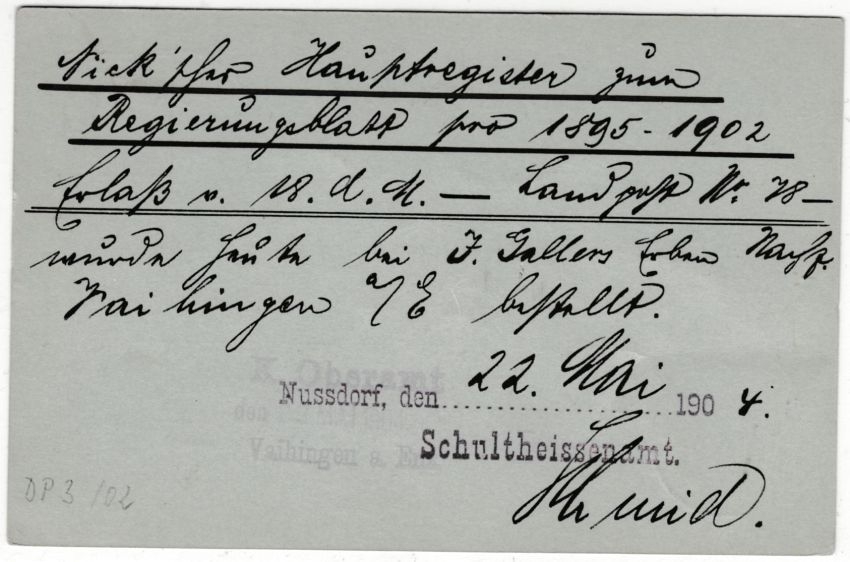 Nick'sches Hauptregister zum
Regierungsblatt pro 1895-1902
Erlaß v. 18. d. M. — Landpost Nr. 78 —
wurde heute bei J. Gallers Erben Nachf.
Vaihingen a/E bestellt.
K. Oberamt
Nussdorf, den 22. Mai 1904.
Vaihingen a Enz
Schultheissenamt.
Schmid.
DP 3/02